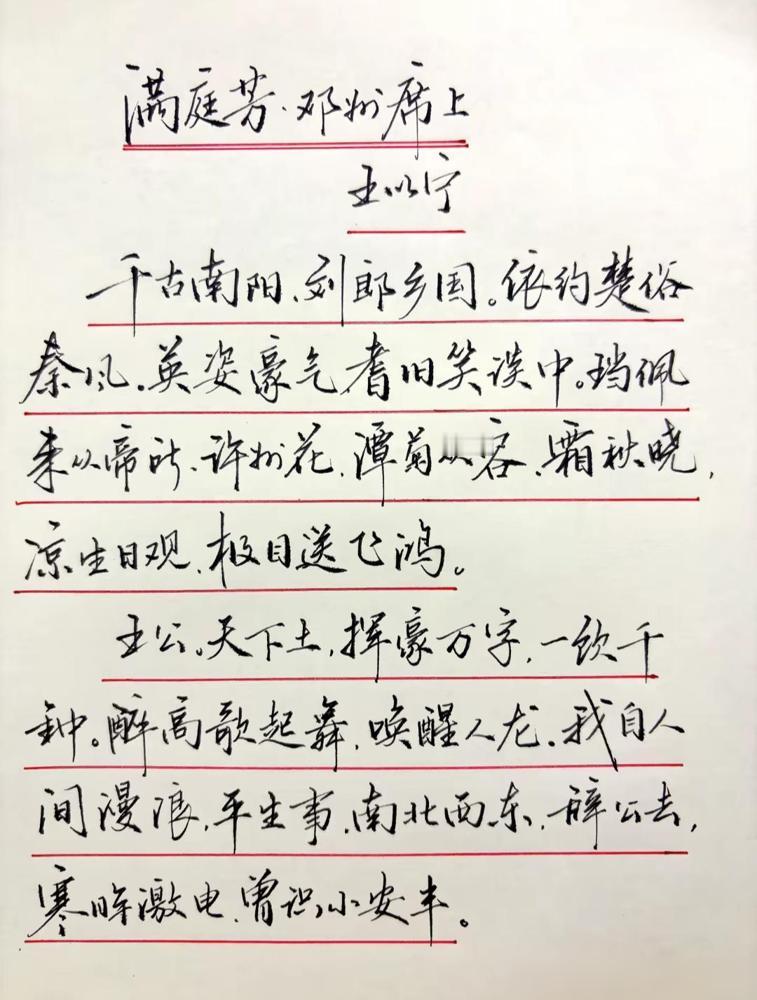 满庭芳·邓州席上
王以宁
千古南阳、刘郎乡国。依约楚俗
秦风。英姿豪气,耆旧笑谈中。珰佩
来从帝所、许州花、潭菊从容、霜秋晓,
凉生日观、极目送飞鸿。
王公。天下士,挥豪万字,一饮千
钟。醉高歌起舞,唤醒人龙。我自人
间漫浪,平生事、南北西东、辞公去,
寒眸激电、曾识小安丰。